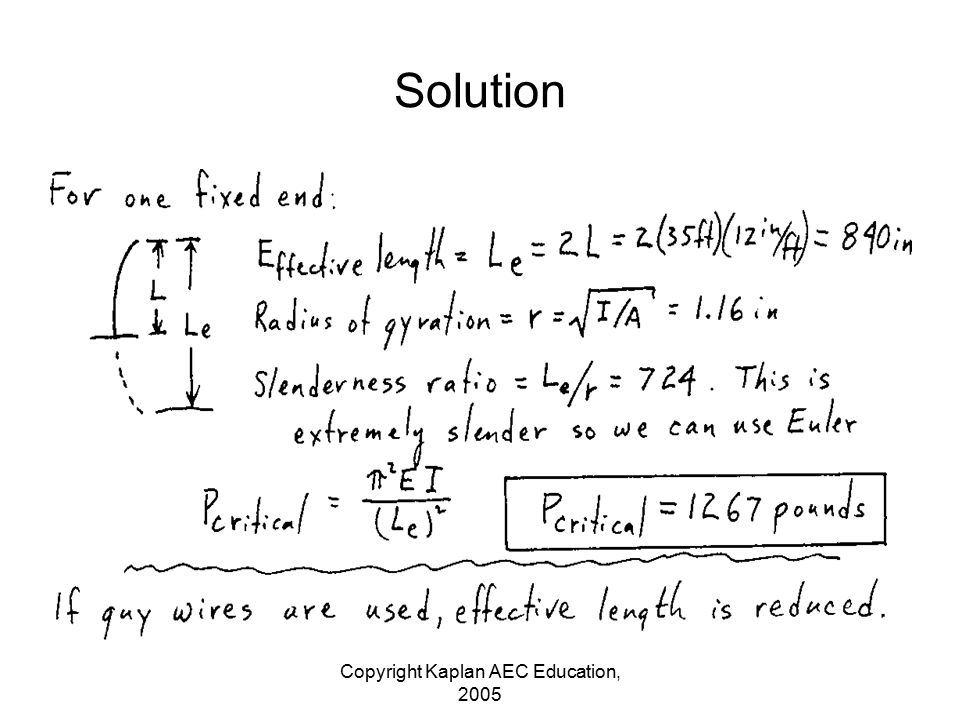 Solution
For one fixed end:
Effective length = Le = 2L = 2(35ft)(12 in/ft) = 840 in
L
Le
Radius of gyration = r = √I/A = 1.16 in
Slenderness ratio = Le/r = 724. This is
extremely slender so we can use Euler
Pcritical = π²EI/(Le)²
Pcritical = 1267 pounds
If guy wires are used, effective length is reduced.
Copyright Kaplan AEC Education,
2005